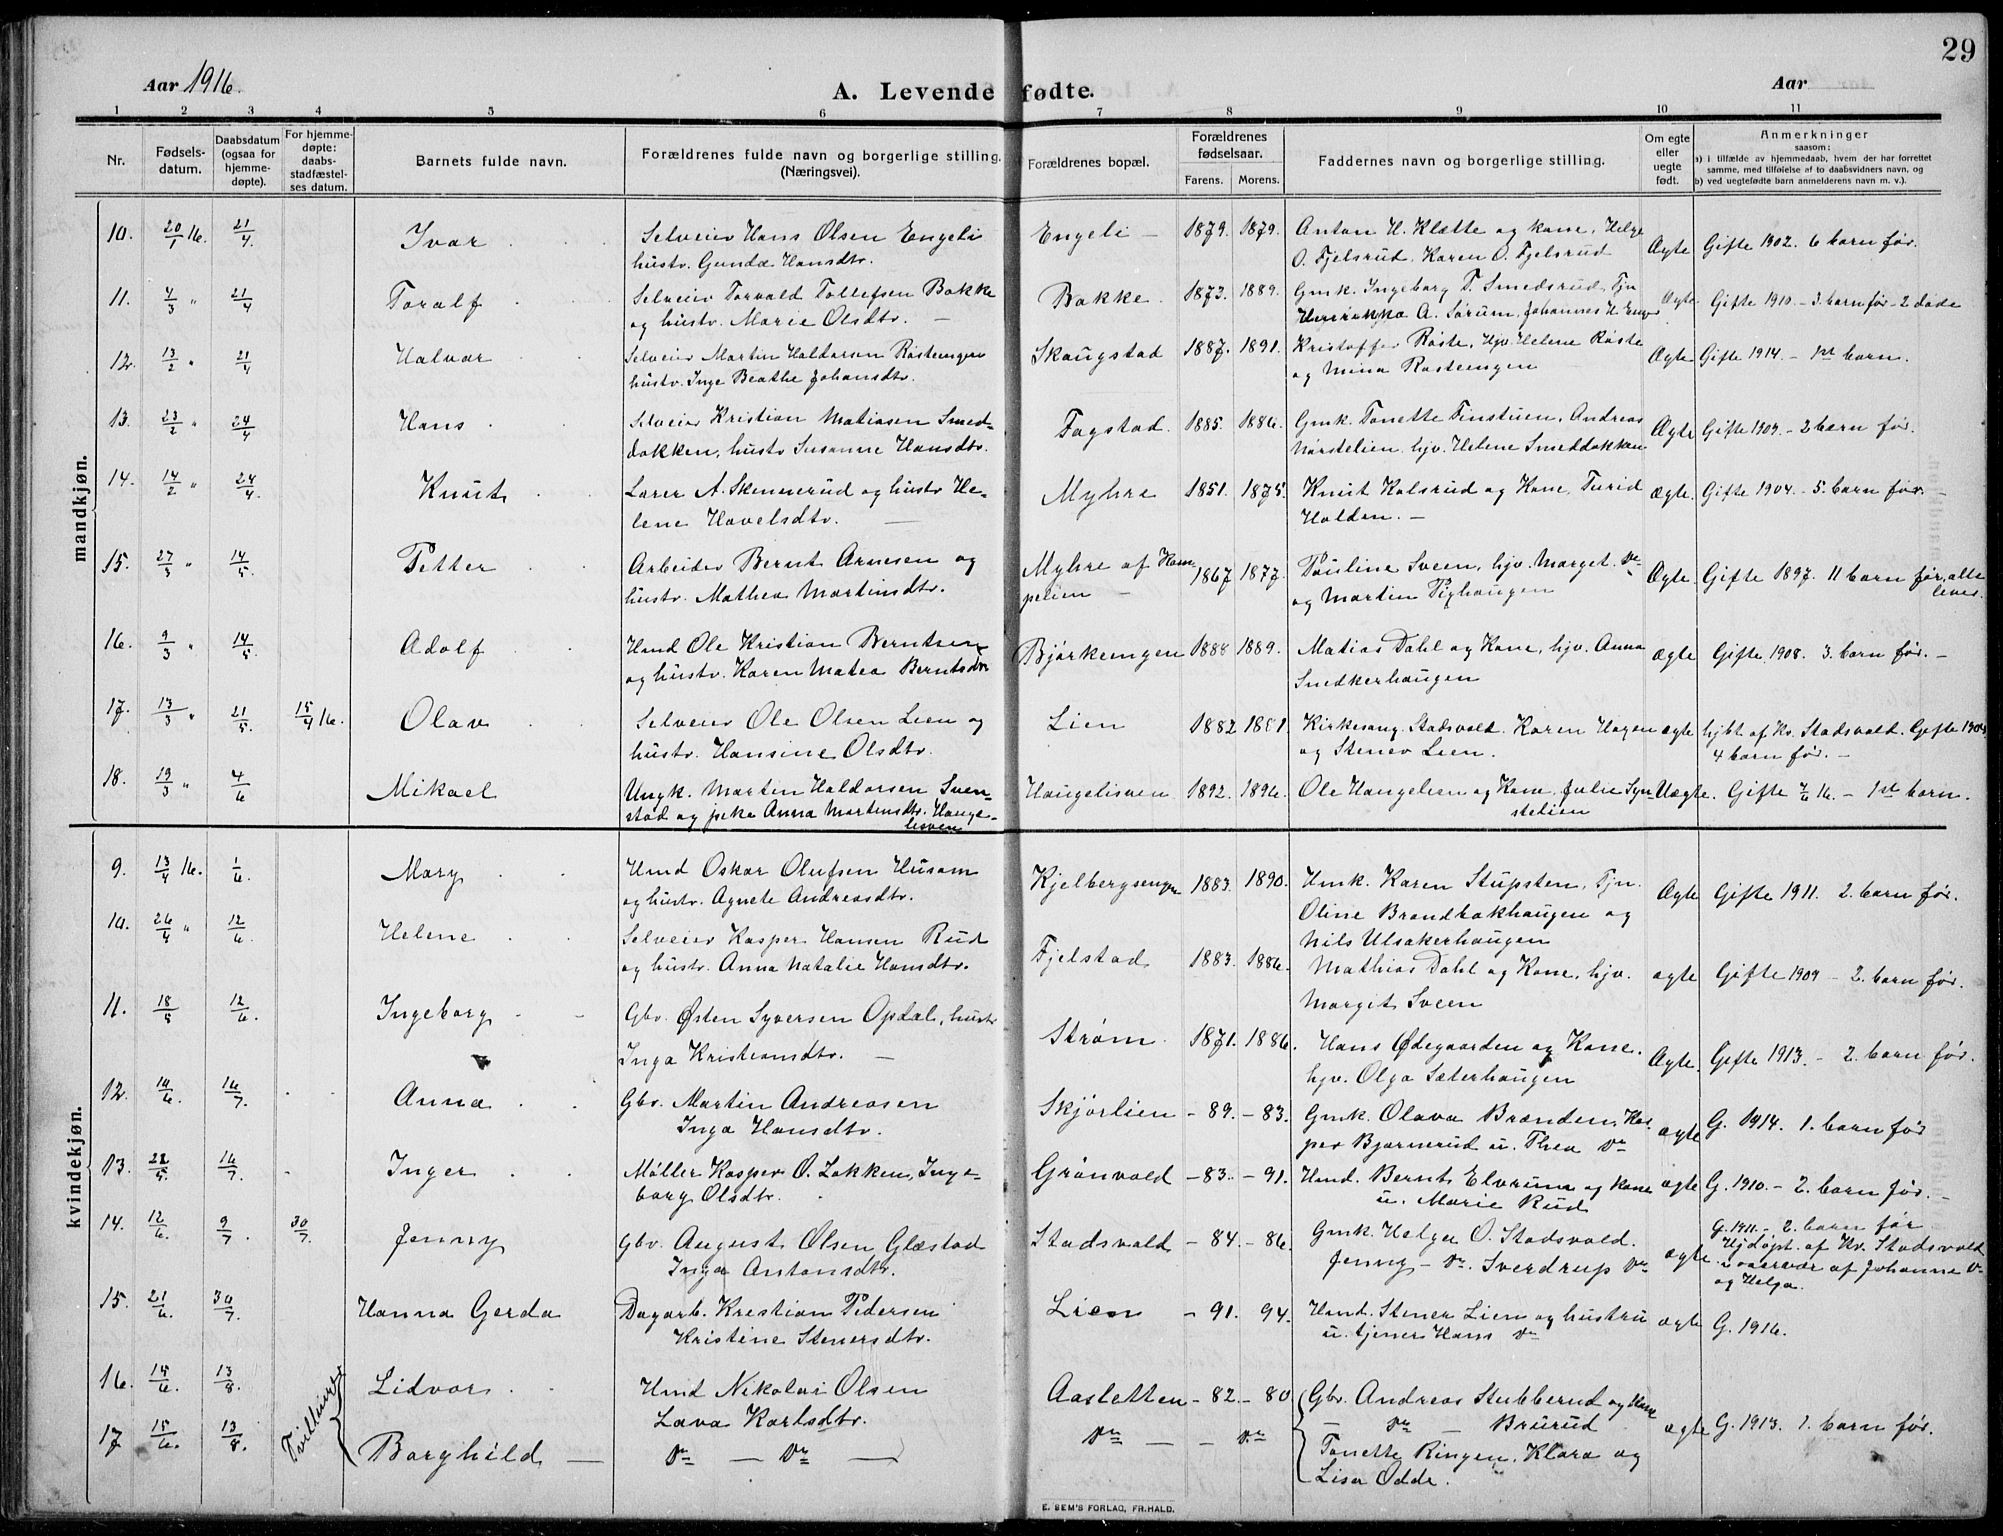 29
Aar 1916.
A. Levende fødte.
Aar
1 2 3 4 5 6 7 8 9 10 11
Nr.
Fødsels-
datum.
Daabsdatum
(ogsaa for
hjemme-
døpte).
For hjemme-
døpte:
daabs-
stadfæstel-
ses datum.
Barnets fulde navn.
Forældrenes fulde navn og borgerlige stilling.
(Næringsvei).
Forældrenes bopæl.
Forældrenes
fødselsaar.
Farens. Morens.
Faddernes navn og borgerlige stilling.
Om egte
eller
uegte
født.
Anmerkninger
saasom:
a) i tilfælde av hjemmedaab, hvem der har forrettet
samme, med tilføielse af to daabsvidners navn, og
b) ved uegtefødte barn anmelderens navn m. v.).
mandkjøn.
10. 20/1 16. 21/4. Ivar Selveier Hans Olsen Engeli Engeli 1879. 1879. Anton H. Klætte og kone, Helge Ægte Gifte 1902. 6 barn før.
hustr. Gunda Hansdtr. O. Fjelsrud, Karen O. Fjelsrud
11. 4/3 " 21/4 Toralf Selveier Torvald Tollefsen Bakke Bakke 1873. 1889. Gmk. Ingeborg T. Smedsrud, Tjn Ægte Gifte 1910 - 3 barn før - 2 døde
og hustr. Marie Olsdtr. A. Sørum, Johannes H.
12. 13/2 " 21/4 Halvor Selveier Martin Haldorsen Røsteengen Skaugstad 1887. 1891. Kristoffer Røste, Hjv. Helene Røste Ægte Gifte 1914 - 1st barn.
hustr. Inge Beathe Johansdtr. og Mina Røsteengen
13. 23/2 " 24/4 Hans Selveier Kristian Matiasen Smed- Fagstad. 1885. 1886. Gmk. Tonette Finstuen, Andreas Ægte Gifte 1909 - 2 barn før.
dokken, hustr Susanne Hansdtr. Nørstelien, hjv. Helene Smeddokken
14. 14/2 " 24/4 Knut Lærer A. Skennerud og hustr He- Myhre 1851. 1875. Knut Kalsrud og Kone, Turid Ægte. Gifte 1904. - 5. barn før. -
lene Havelsdtr. Holden. -
15. 27/3 " 14/5. Petter Arbeider Bernt Arnesen og Myhre af Kam- 1867 1877. Pauline Sveen, hjv. Marget do Ægte. Gifte 1897. 11 barn før, alle
hustr. Mathea Martinsdtr. pelien og Martin Pighaugen lever.
16. 9/3 " 14/5. Adolf Hmd Ole Kristian Berntsen Bjørkeengen 1888 1889. Matias Dahl og Kone, hjv. Anna Ægte Gifte 1908. 3. barn før. -
og hustr. Karen Matea Berntsdtr Snedkerhaugen
17. 13/3 " 21/5. 15/4 16. Olav Selveier Ole Olsen Lien og Lien 1882 1881. Kirkesang. Stadsvold. Karen Hagen ægte hjbt af Kv. Stadsvold. Gifte 1904
hustr. Hansine Olsdtr. og Stener Lien. 4 barn før. -
18. 19/3 " 4/6 Mikael Ungk. Martin Haldorsen Sven- Haugelisveen 1892. 1896. Ole Haugelien og Kone, Julie Syn- Uægte. Gifte 4/6 16. - 1st barn.
stad og pike Anna Martinsdtr. Hauge- stelien
lisveen
kvindekjøn.
9. 13/4 16. 1/6. Mary Hmd Oskar Olufsen Husom Kjelbergsengen 1883. 1890. Hmk. Karen Stupsten, Tjn. Ægte Gifte 1911. 2. barn før.
og hustr. Agnete Andreasdtr. Oline Brandbakhaugen og
Nils Ulsakerhaugen
10. 26/4 " 12/6. Helene Selveier Kasper Hansen Rud Fjelstad 1883. 1886. Mathias Dahl og Kone, hjv. ægte Gifte 1909 - 2. barn før.
og hustr. Anna Natalie Hansdtr. Margit Sveen
11. 18/5 12/6. Ingeborg Gbr. Østen Syversen Opdal, hustr Strøm. 1871. 1886. Hans Ødegaarden og Kone. Ægte. Gifte 1913. - 2. barn før.
Inga Kristiansdtr. - hjv. Olga Sæterhaugen
12. 14/6. 16/7. Anna Gbr. Martin Andreasen Skjørlien - 89. - 83. Gmk. Olava Brænden, Kas- ægte G. 1914. 1. barn før
Inga Hansdtr. per Bjørnerud u. Thea do
13. 22/5. 16/7. Inger Møller Kasper O. Løkken, Inge- Grønvold - 83. - 91. Hmd. Bernt Elvrum og Kone ægte G. 1910. - 2. barn før. -
borg Olsdtr. u. Marie Rud
14. 12/6. 9/7. 30/7. Jenny Gbr. August Olsen Glæstad Stadsvold - 84. - 86. Gmk Helga O. Stadsvold. ægte. G. 1911. - 2. barn før
Inga Antonsdtr. Jenny - do. Sverdrup do Hjdøpt. af Kv. Stadsvold
i nærvær af Johanne do
og Helga.
15. 21/6. 30/7. Hanna Gerda Dagarb. Kristian Pedersen Lien - 91. 94. Hmd. Stener Lien og hustru ægte G. 1916.
Kristine Stenersdtr. u. tjener Hans do
16. 15/6. 13/8. Tvillinger Lidvar Hmd Nikolai Olsen Aasletten - 82. - 80 Gbr. Andreas Stubberud og Kone
Lava Karlsdtr. - do - Brurud
17 15/6. 13/8. Borghild - do - do - do - - do Tonette Ringen, Klara og ægte G. 1913. 1. barn før.
Lisa Odde.
E. SEM'S FORLAG, FR.HALD.